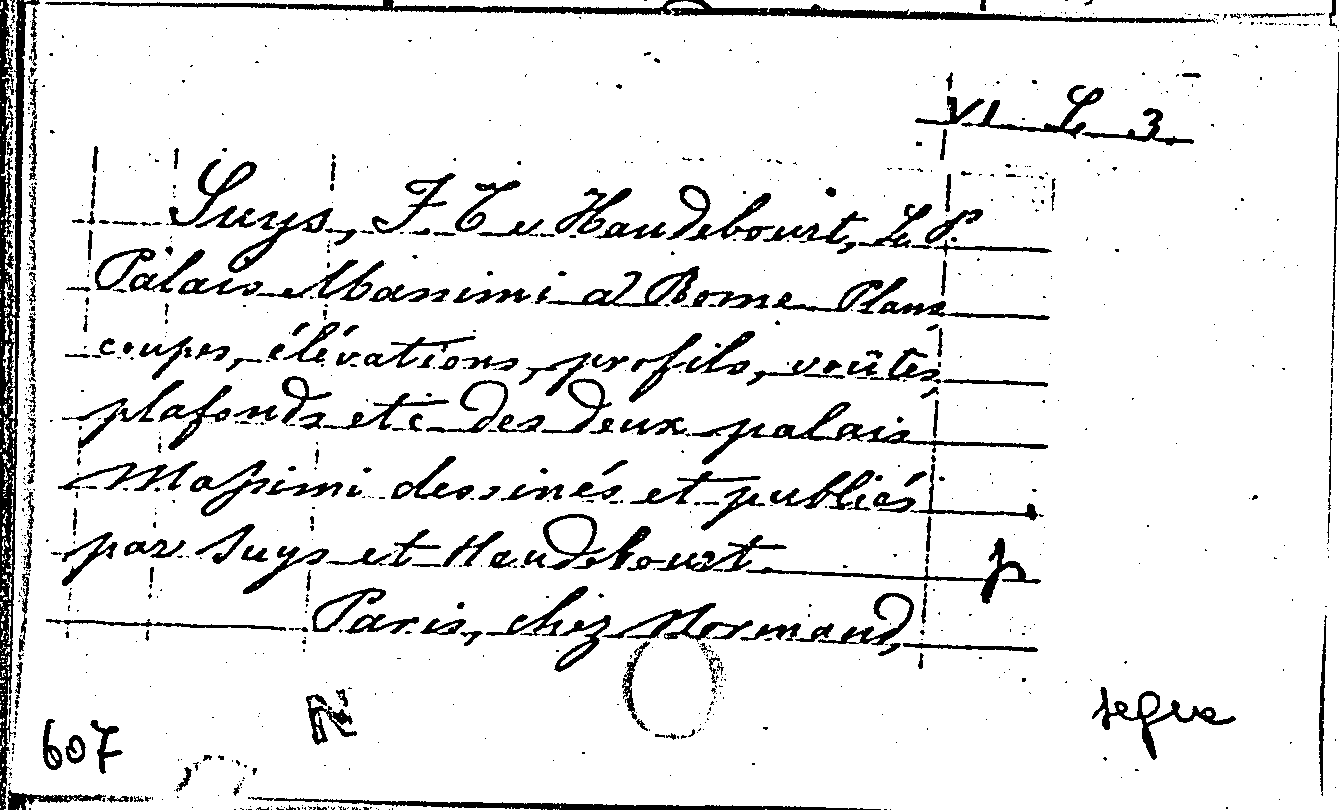 VI L 3
Suys, F. T. e Haudebourt, L. P.
Palais Massimi a Rome Plans
coupes, élévations, profils, voûtes,
plafonds etc des deux palais
Massimi dessinés et publiés
par Suys et Haudebourt.
Paris, chez Normand,
segue
607
N